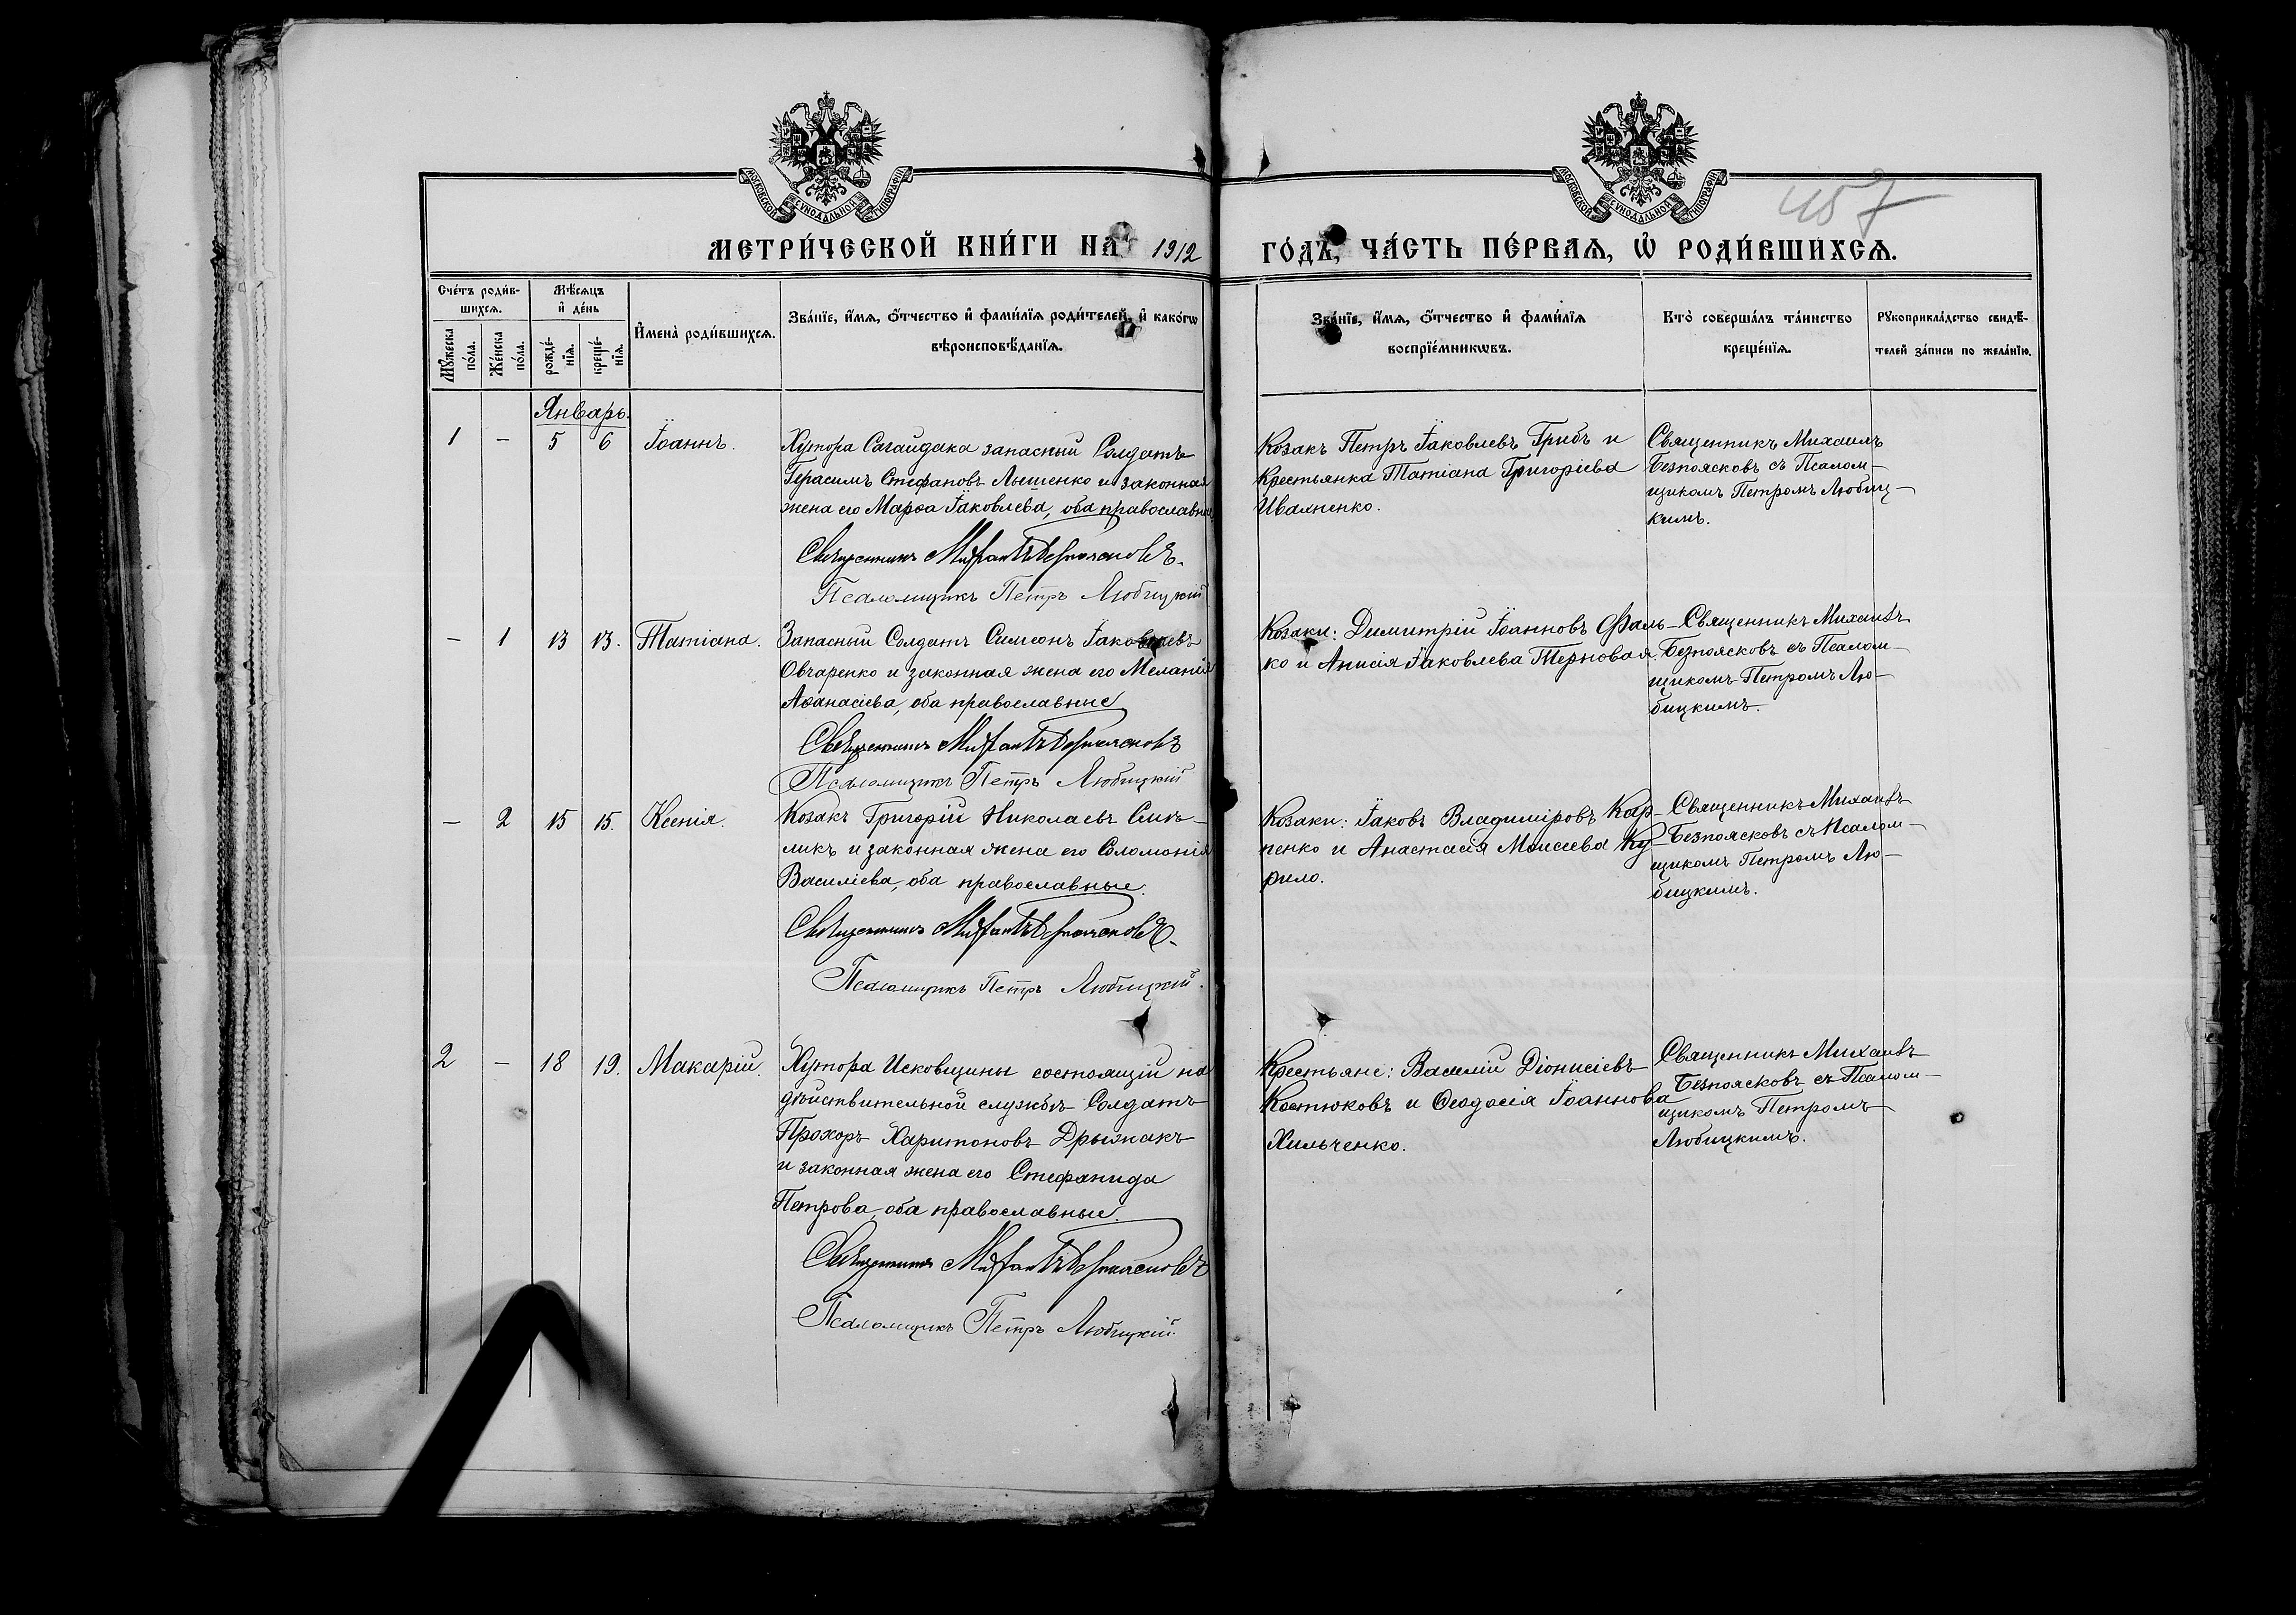 МОСКОВСКОЙ СѴНОДАЛЬНОЙ ТИПОГРАФІИ
МОСКОВСКОЙ СѴНОДАЛЬНОЙ ТИПОГРАФІИ
457
МЕТРИ́ЧЕСКОЙ КНИ́ГИ НА 1912
ГО́ДЪ, ЧА́СТЬ ПЕ́РВАЯ, Ѡ РОДИ́ВШИХСЯ.
Сче́тъ роди́в-
шихся.
Мꙋ́жеска
по́ла.
Же́нска
по́ла.
Мѣ́сяцъ
и҆ де́нь
рожде́-
нїя.
креще́-
нїя.
И҆мена̀ роди́вшихся.
Зва́нїе, и҆́мя, ѻ҆́тчество и҆ фами́лїя роди́телей, и҆ како́гѡ
вѣроисповѣ́данїя.
Зва́нїе, и҆́мя, ѻ҆́тчество и҆ фами́лїя
воспрїе́мникѡвъ.
Кто̀ соверша́лъ та́инство
креще́нїя.
Рꙋкоприкла́дство свидѣ́-
телей за́писи по жела́нїю.
Январь.
1 — 5 6 Іоаннъ.
Хутора Сагайдака запасный Солдатъ
Герасимъ Стефановъ Лышенко и законная
жена его Марѳа Іаковлева, оба православные
Священникъ Михаилъ Безпоясковъ.
Псаломщикъ Петръ Любицкій
Козакъ Петръ Іаковлевъ Грибъ и
Крестьянка Татіана Григоріева
Иваненко.
Священникъ Михаилъ
Безпоясковъ съ Псалом-
щикомъ Петромъ Любиц-
кимъ.
— 1 13 13. Татіана.
Запасный Солдатъ Симеонъ Іаковлевъ
Овчаренко и законная жена его Меланія
Аѳанасіева, оба православные
Священникъ Михаилъ Безпоясковъ
Псаломщикъ Петръ Любицкій
Козаки: Димитрій Іоанновъ Фаль-
ко и Анисія Іаковлева Терновая.
Священникъ Михаилъ
Безпоясковъ съ Псалом-
щикомъ Петромъ Лю-
бицкимъ.
— 2 15 15. Ксенія.
Козакъ Григорій Николаевъ Сив-
ликъ и законная жена его Соломонія
Василіева, оба православные.
Священникъ Михаилъ Безпоясковъ.
Псаломщикъ Петръ Любицкій.
Козаки: Іаковъ Владиміровъ Кар-
пенко и Анастасія Моисеева Ку-
рило.
Священникъ Михаилъ
Безпоясковъ съ Псалом-
щикомъ Петромъ Лю-
бицкимъ.
2 — 18 19. Макарій.
Хутора Исковщины состоящій на
дѣйствительной службѣ Солдатъ
Прохоръ Харитоновъ Дрыжакъ
и законная жена его Стефанида
Петрова, оба православные.
Священникъ Михаилъ Безпоясковъ
Псаломщикъ Петръ Любицкій.
Крестьяне: Василій Діонисіевъ
Костюковъ и Ѳеодосія Іоаннова
Хильченко.
Священникъ Михаилъ
Безпоясковъ съ Псалом-
щикомъ Петромъ
Любицкимъ.